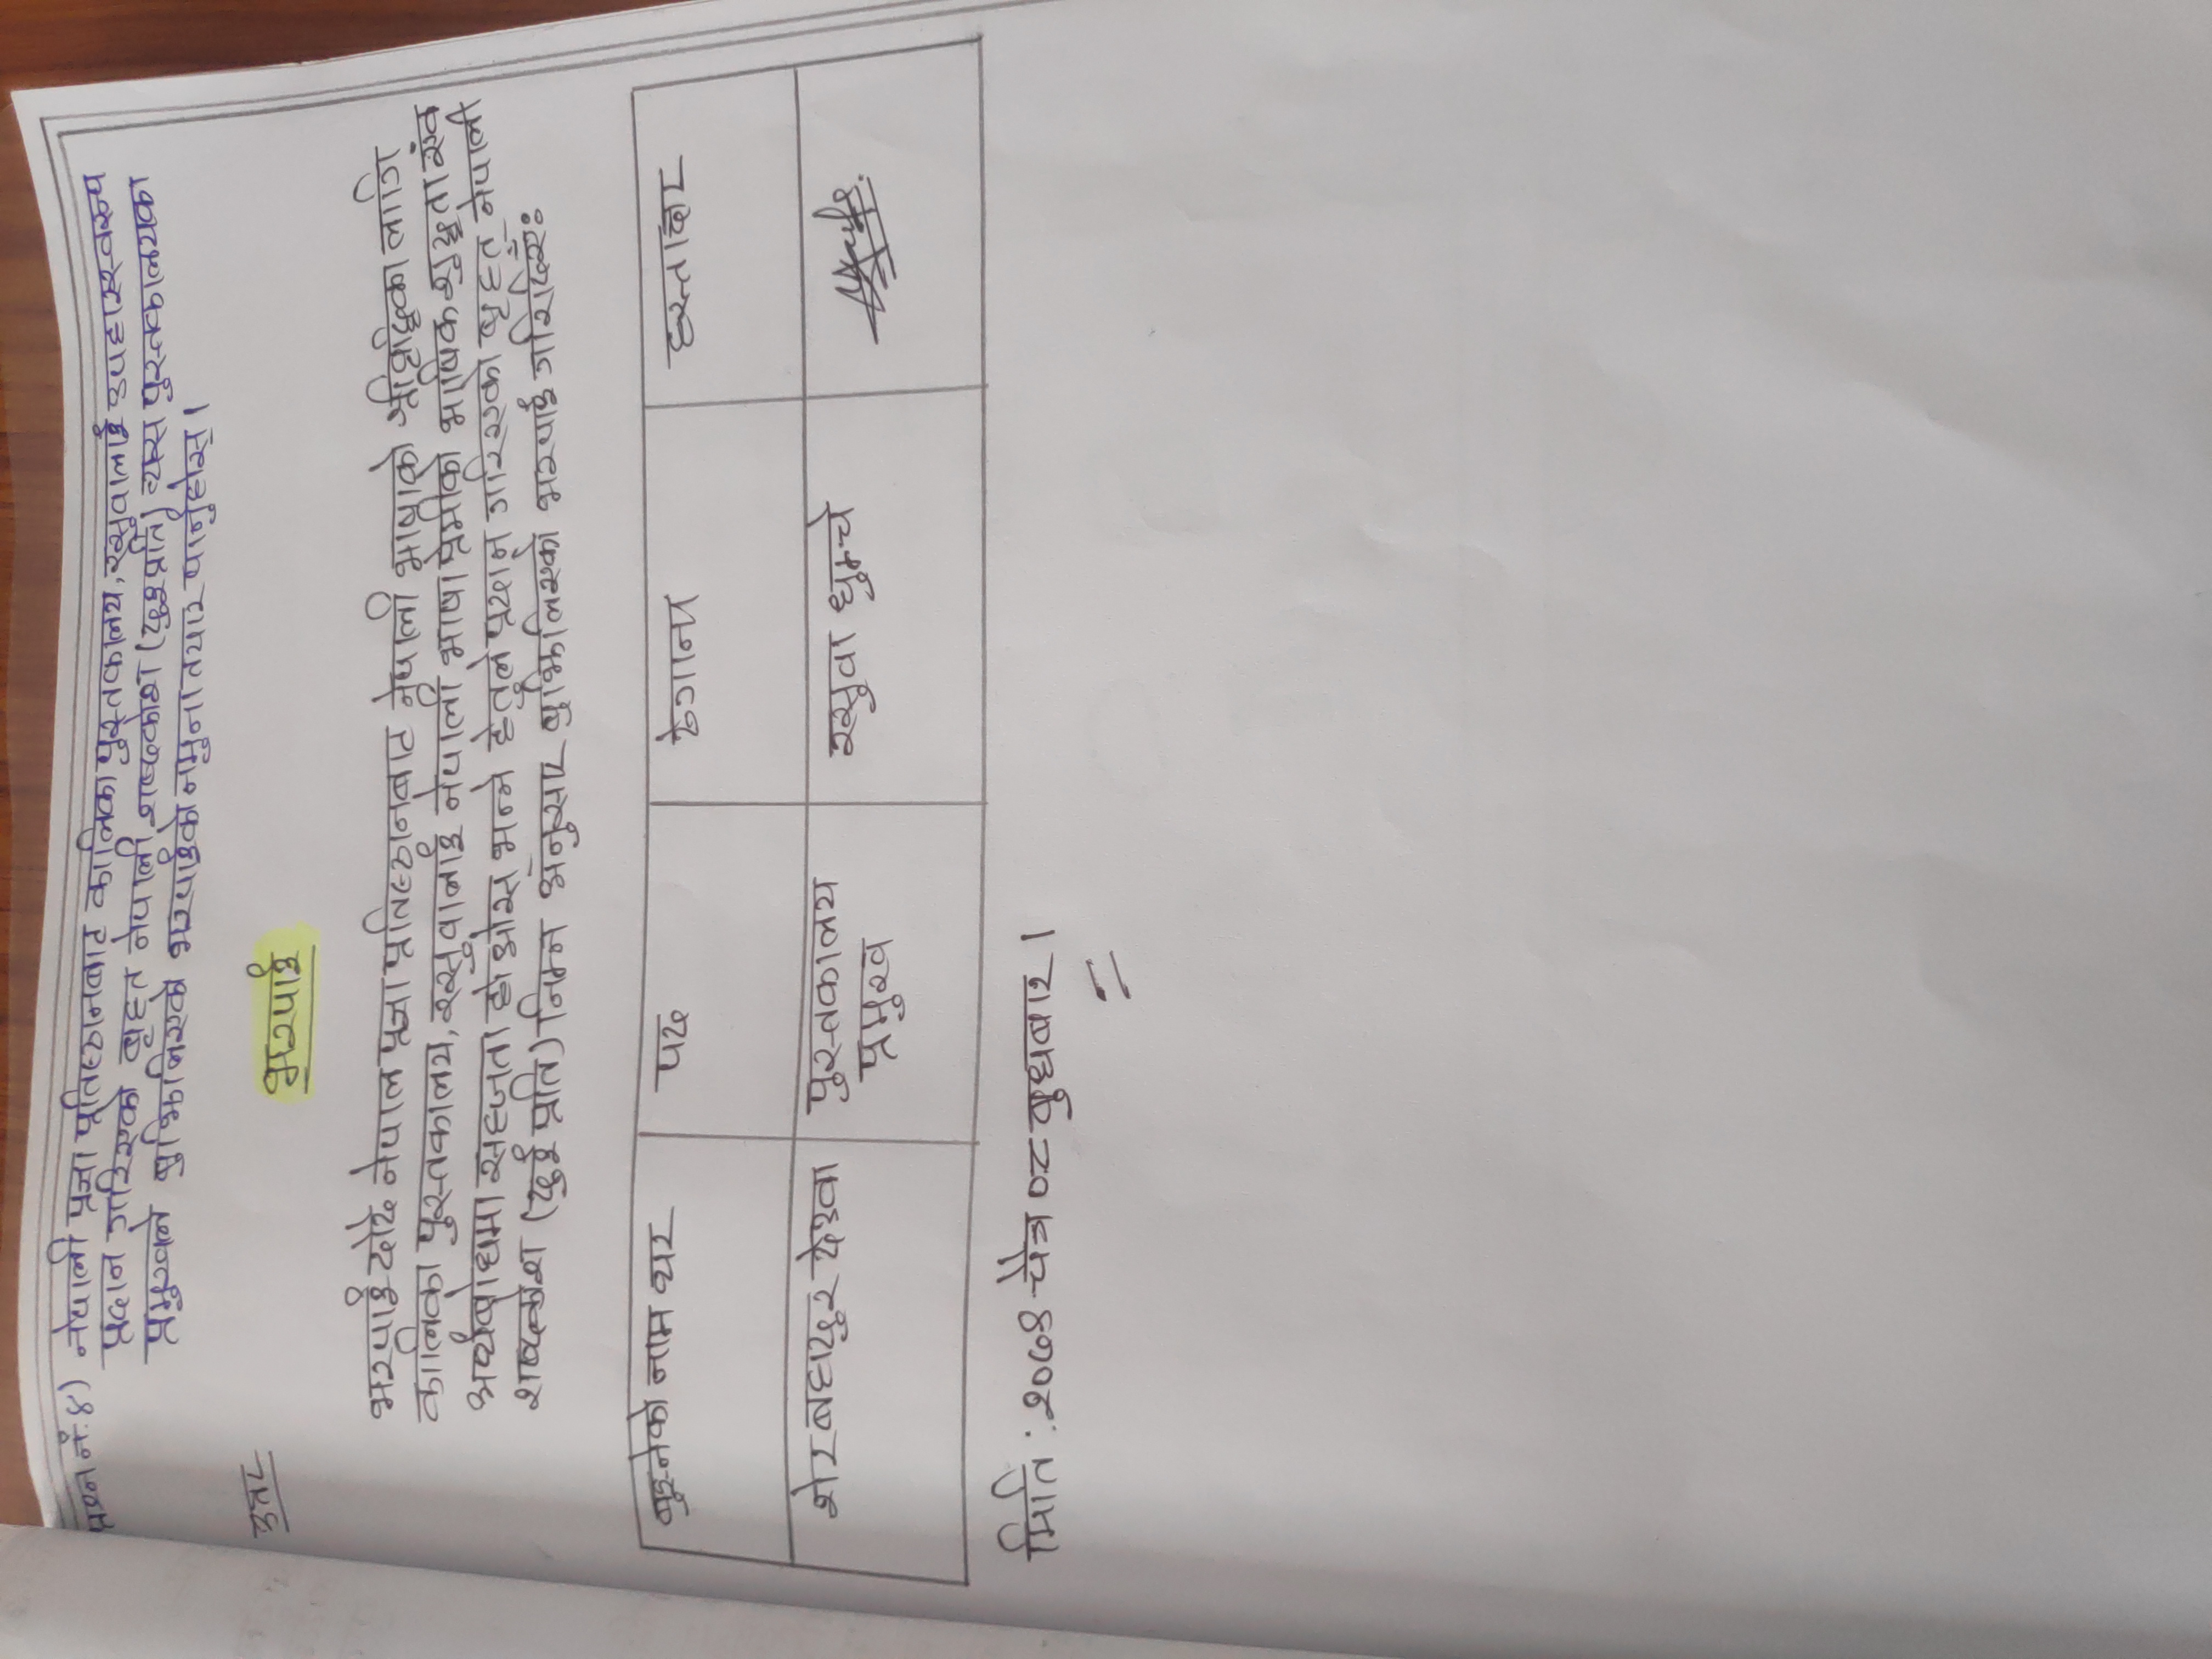 प्रश्न नं.४) नेपाली प्रज्ञा प्रतिष्ठानबाट कालिका पुस्तकालय, रसुवालाई उपहारस्वरूप
प्रदान गरिएको बृहत नेपाली शब्दकोश (दुइप्रति) त्यस पुस्तकालयका
प्रमुखले बुझिलिएको भरपाईको नमुना तयार पार्नुहोस् ।
उत्तर
भरपाई
भरपाई दोदै नेपाल प्रज्ञा प्रतिष्ठानबाट नेपाली भाषाको श्रीवृद्धिका लागि
कालिका पुस्तकालय, रसुवालाई नेपाली भाषा प्रेमीको भाषिक शुद्धता एंव
अर्थबोधमा सहजता होओस् भन्ने हेतुले प्रदान गरिएको बृहत् नेपाली
शब्दकोश (दुई प्रति) निम्न अनुसार बुझिलिएको भरपाई गरिदिएँः
बुझ्नेको नाम थर पद ठेगाना हस्ताक्षर
शेर बहादुर देउवा पुस्तकालय रसुवा धुन्चे
प्रमुख
मिति : २०७४ चैत्र ०८ बुधबार ।